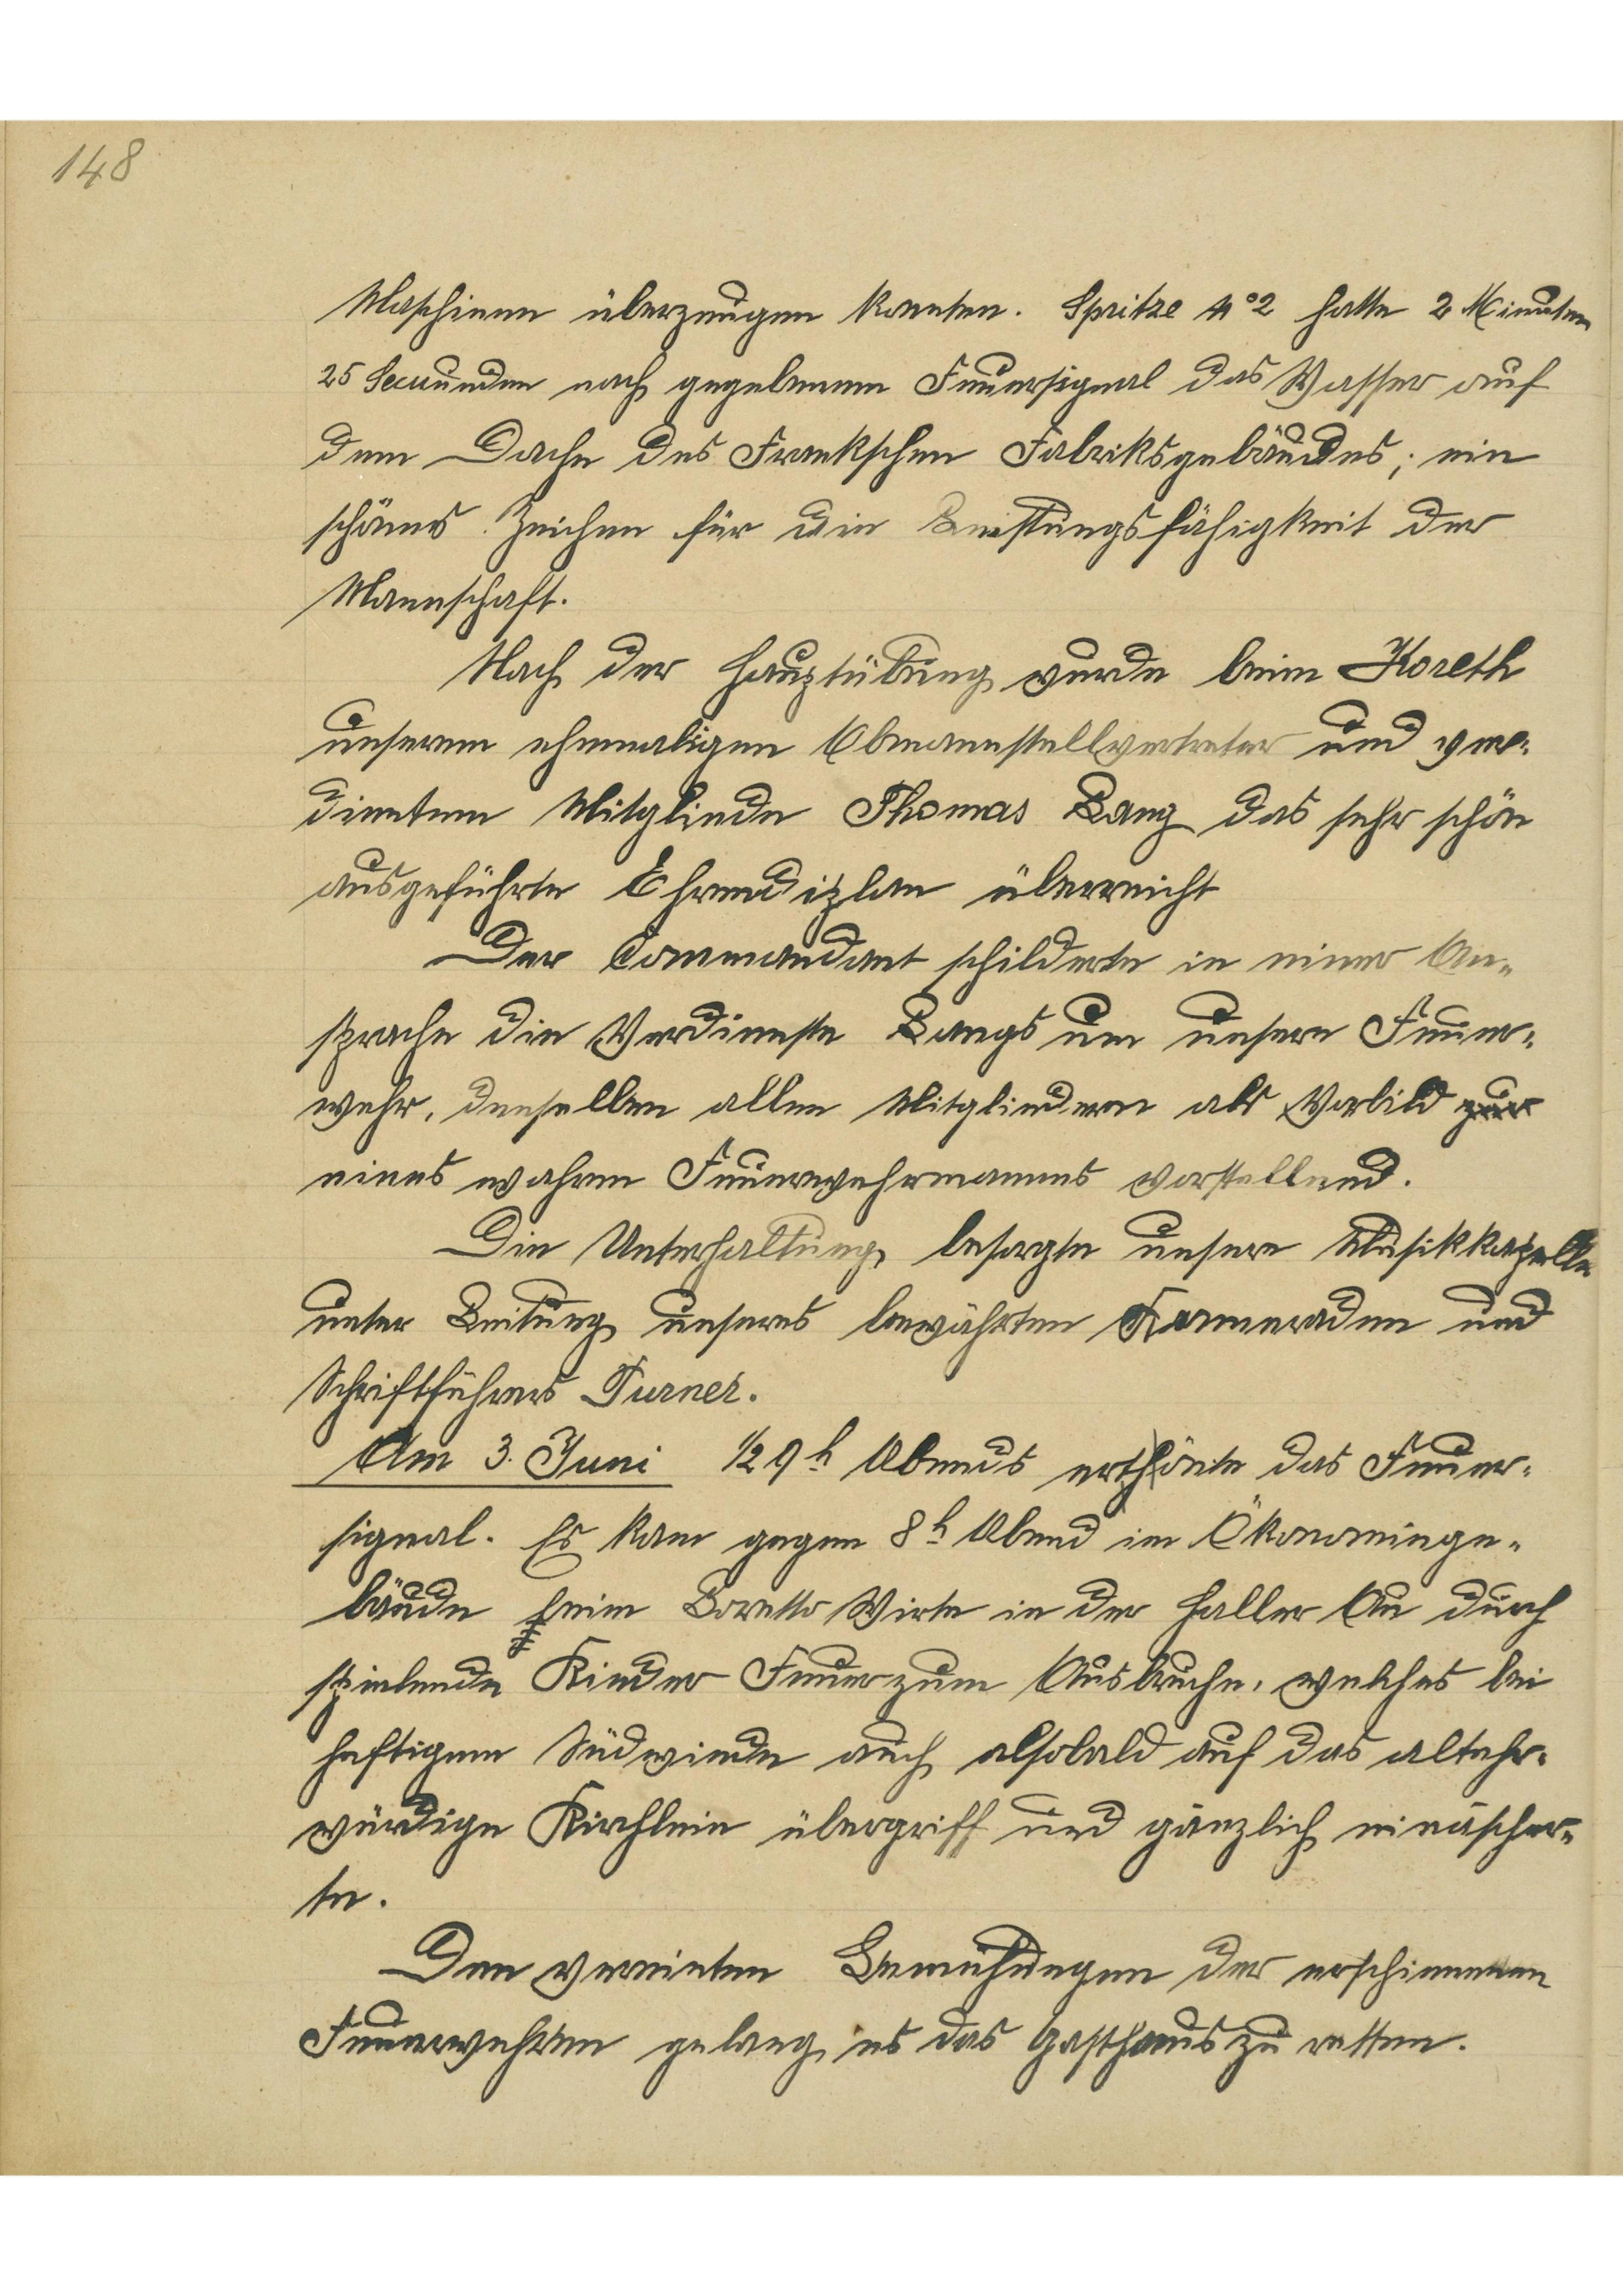 148
Maschinen überzeugen konnten. Spritze No 2 hatte 2 Minuten
25 Secuunden nach gegebenem Feuersignal das Wasser auf
dem Dache des Frankschen Fabriksgebäudes; ein
schönes Zeichen für die Leistungsfähigkeit der
Mannschaft.
Nach der Hauptübung wurde beim Koreth
unserem ehemaligen Obmannstellvertreter und ver-
dientem Mitgliede Thomas Lang das sehr schön
ausgeführte Ehrendiplom überreicht
Der Commandant schilderte in einer An-
sprache die Verdienste Langs um unsere Feuer-
wehr, denselben allen Mitgliedern als Vorbild zur
eines wahren Feuerwehrmannes vorstellend.
Die Unterhaltung besorgte unsere Musikkapelle
unter Leitung unseres bewährten Kameraden und
Schriftführers Purner.
Am 3. Juni 1/2 9 h Abends erthönte das Feuer-
signal. Es kam gegen 8 h Abend im Ökonomiege-
bäude beim Loretto Wirte in der Haller Au durch
spielende Kinder Feuer zum Ausbruche, welches bei
heftigem Südwinde auch alsobald auf das altehr-
würdige Kirchlein übergriff und gänzlich einäscher-
te.
Den vereinten Bemühungen der erschienenen
Feuerwehren gelang es das Gasthaus zu retten.